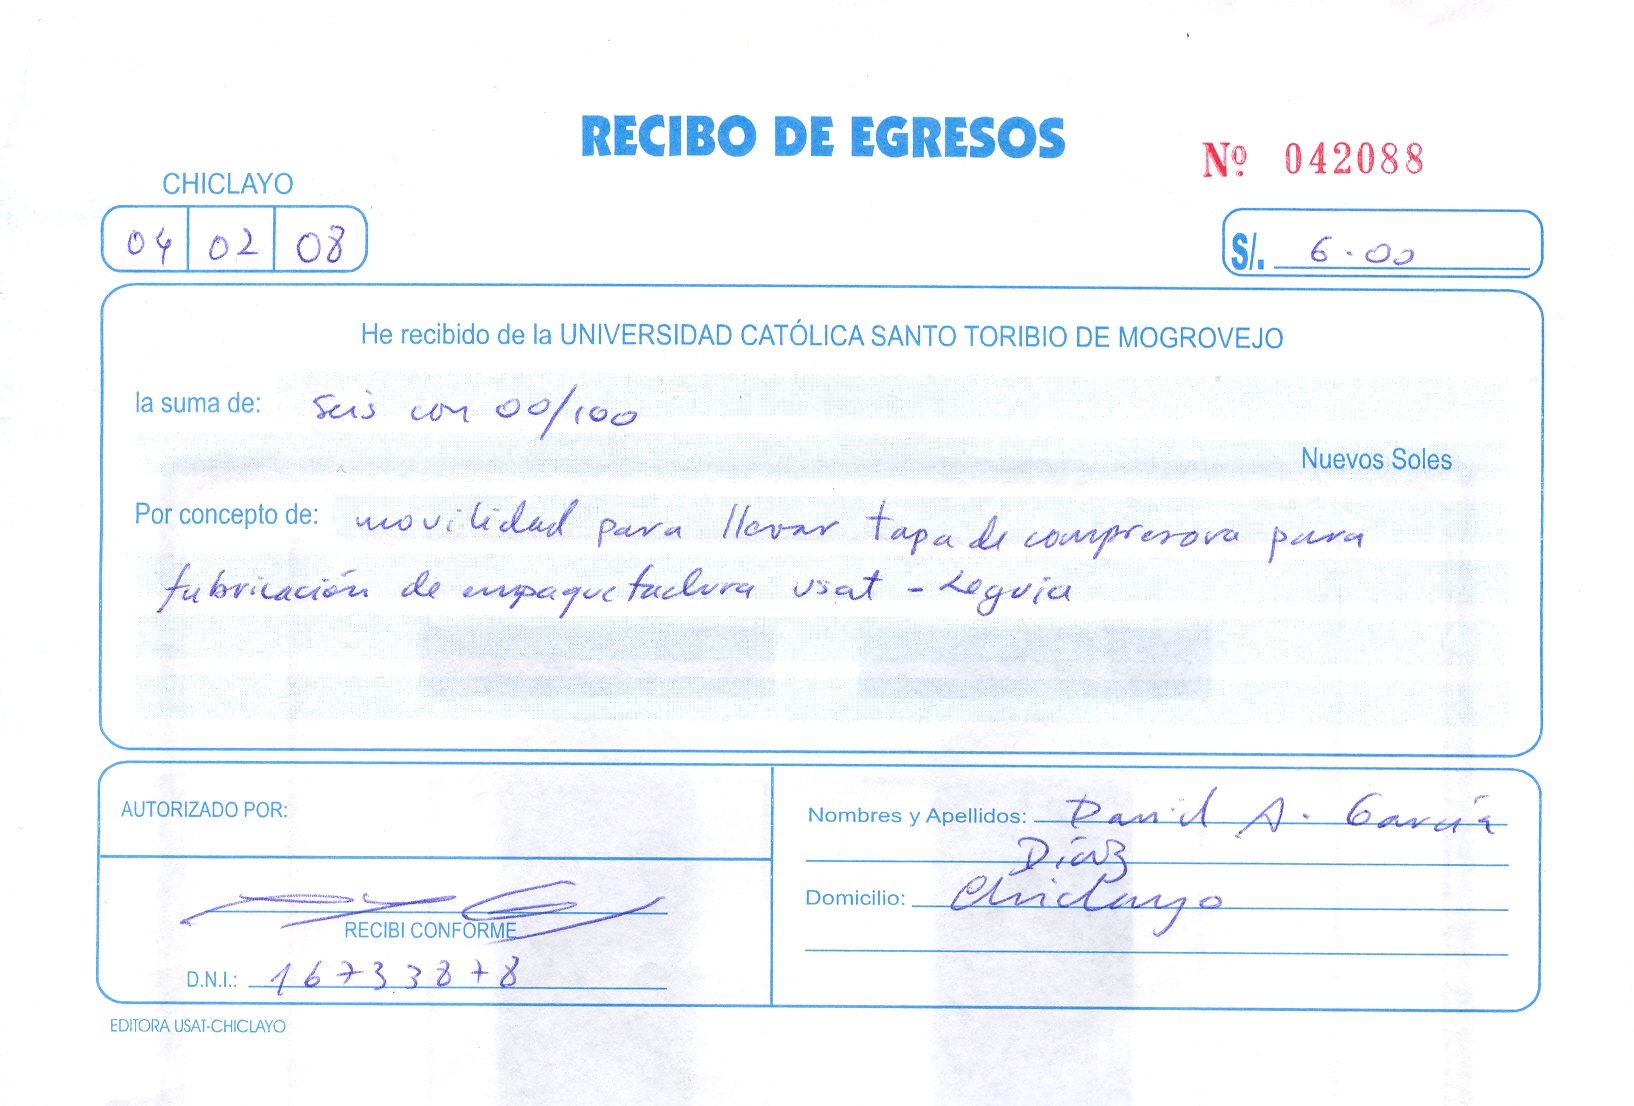 RECIBO DE EGRESOS
Nº 042088
CHICLAYO
04 02 08
S/. 6.00
He recibido de la UNIVERSIDAD CATÓLICA SANTO TORIBIO DE MOGROVEJO
la suma de: Seis con 00/100
Nuevos Soles
Por concepto de: movilidad para llevar tapa de compresora para
fabricación de empaquetadura usat - Leguia
AUTORIZADO POR:
RECIBI CONFORME
D.N.I.: 16733878
Nombres y Apellidos: David A. García
Díaz
Domicilio: Chiclayo
EDITORA USAT-CHICLAYO